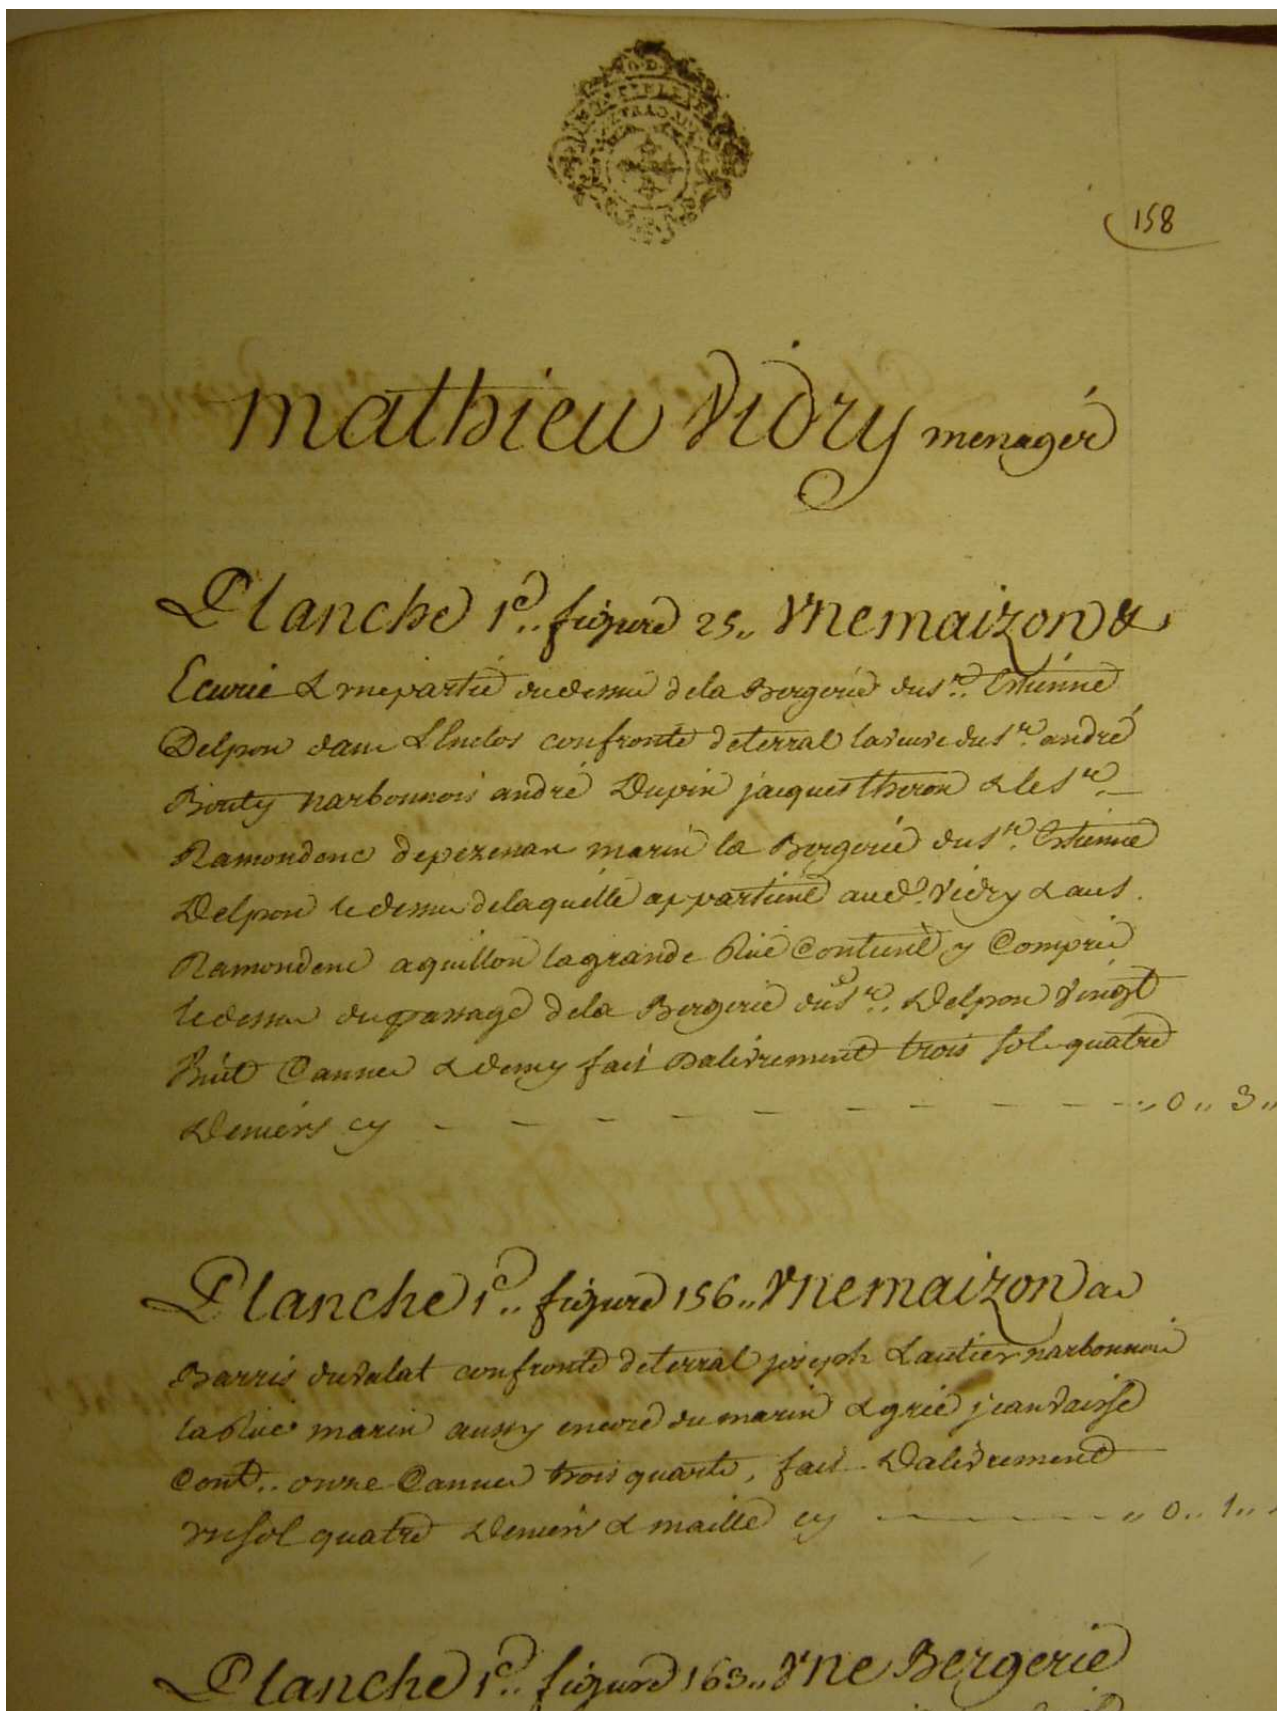 158
mathieu Vidry menager
Planche 1e.. figure 25.. Vne maizon &
Ecurie & vne partie du dessus de la Bergerie du sr. Estienne
Delpon dans L'Enclos confronte de terral la veuve du sr. andré
Bouty narbonnois andré Dupin jacques theron & le sr.
Ramondenc de pezenas marin la Bergerie du sr. Estienne
Delpon le dessus de laquelle appartient aud. Vidry & au s.
Ramondenc aquillon la grande Rue Contient y Compris
le dessus du passage de la Bergerie du sr. Delpon Vingt
huit Cannes & demy fait Dalivrement trois sols quatre
Deniers cy - - - - - - - - - - ,, 0 ,, 3 ,,
Planche 1e.. figure 156.. Vne maizon au
Barris du Valat confronte de terral joseph Lautier narbonnois
la Rue marin aussy encore du marin & grec jean Vaisse
Cont.. onze Cannes trois quarts, fait Dalivrement
vn sol quatre Deniers & maille cy ,, 0 ,, 1 ,,
Planche 1e.. figure 163.. Vne Bergerie